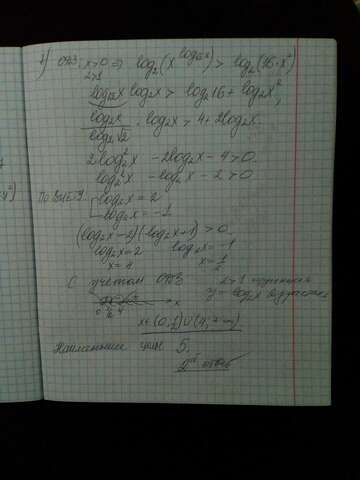 ОДЗ: x>0 ⇒ log₂(x^(log_√2 x)) > log₂(16·x²)
2>1
log_√2 x · log₂x > log₂16 + log₂x²,
log₂x / log₂√2 · log₂x > 4+2log₂x
2log₂²x - 2log₂x - 4 > 0.
log₂²x - log₂x - 2 > 0
log₂x = 2
log₂x = -1
(log₂x-2)(log₂x+1) > 0.
log₂x=2 log₂x = -1
x=4 x=1/2
С учетом ОДЗ 2>1
y=log₂x возрастает
0 1/2 4 x
x∈(0;1/2)∪(4;+∞)
Наименьшее цел 5.
ответ